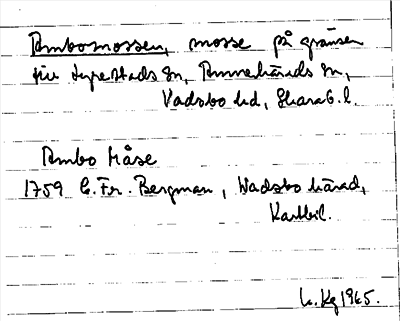 Ambomossen, mosse på gränsen
till Lyrestads sn, Amnehärads sn,
Vadsbo hd, Skarab. l.
Ambo Måse
1759 C. Fr. Bergman, Wadsbo härad,
Kartbil.
1965.